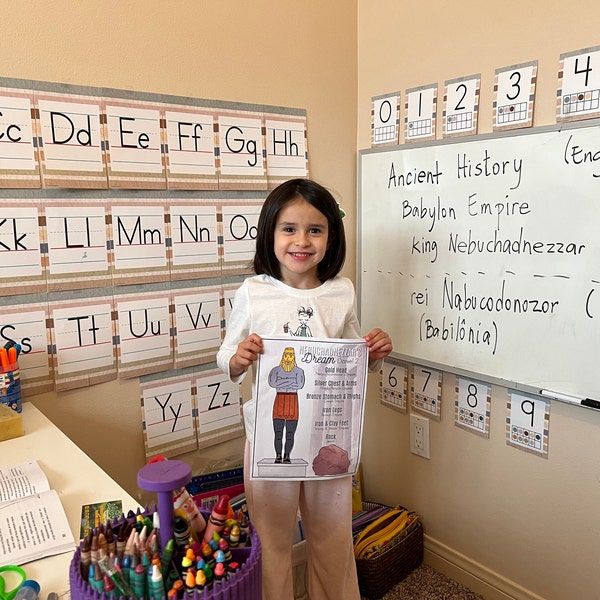 Cc Dd Ee Ff Gg Hh
Kk Ll Mm Nn Oo
Ss Tt Uu Vv
Yy Zz
0 1 2 3 4
Ancient History (Eng
Babylon Empire
King Nebuchadnezzar
rei Nabucodonozor (
(Babilônia)
6 7 8 9
NEBUCHADNEZZAR'S
Dream Daniel 2
Gold Head
Silver Chest & Arms
Bronze Stomach & Thighs
Iron Legs
Iron & Clay Feet
Rock